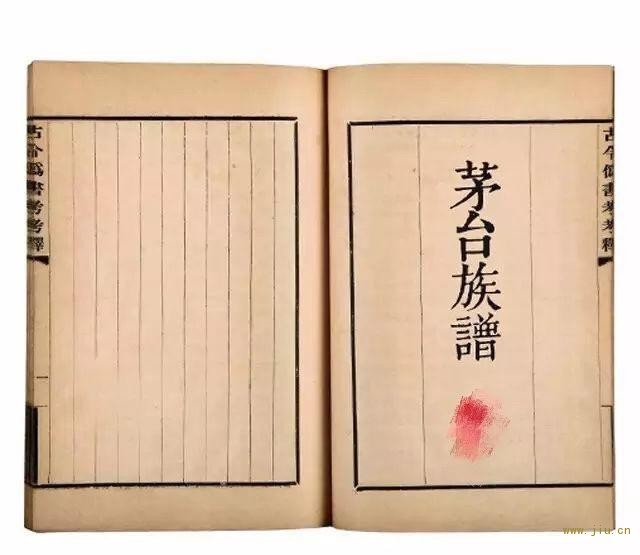 茅台族譜
古今僞書考考釋
古今僞書考考釋
一
www.jiu.cn